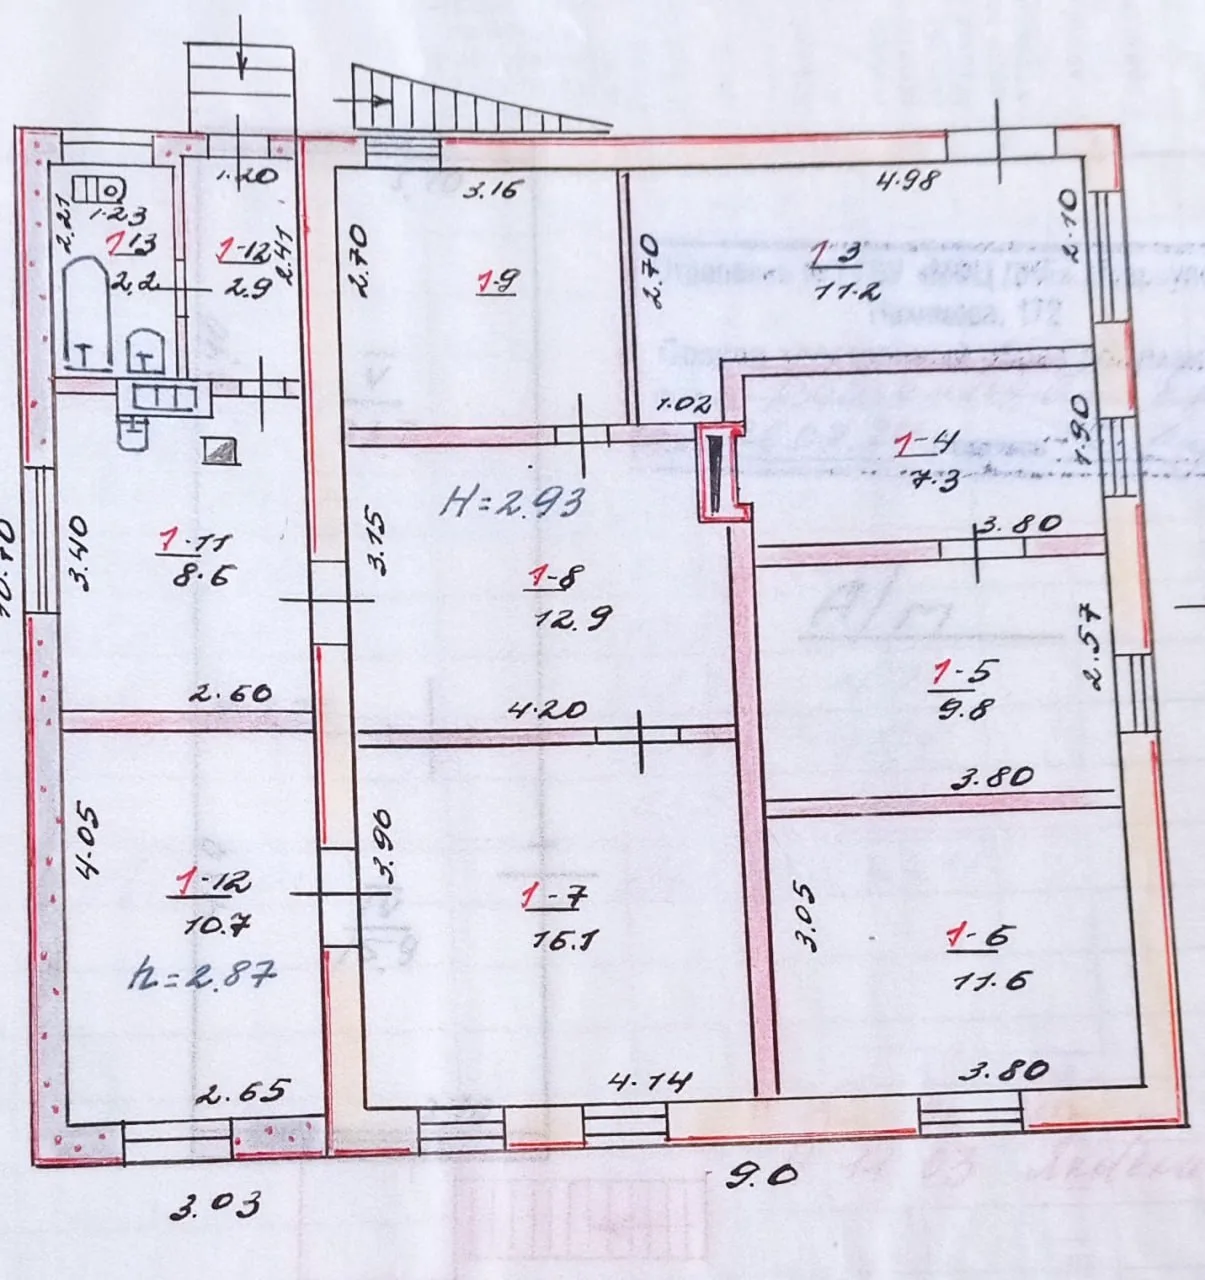 1.20
3.16
4.98
2.21
1.23
1-13
2.2
1-12
2.9
2.41
2.70
1-9
2.70
1-3
11.2
2.10
1.02
1-4
7.3
1.90
3.80
H=2.93
3.40
1-11
8.6
2.60
3.15
1-8
12.9
4.20
1-5
9.8
2.57
3.80
4.05
1-12
10.7
h=2.87
2.65
3.96
1-7
16.1
4.14
3.05
1-6
11.6
3.80
3.03
9.0